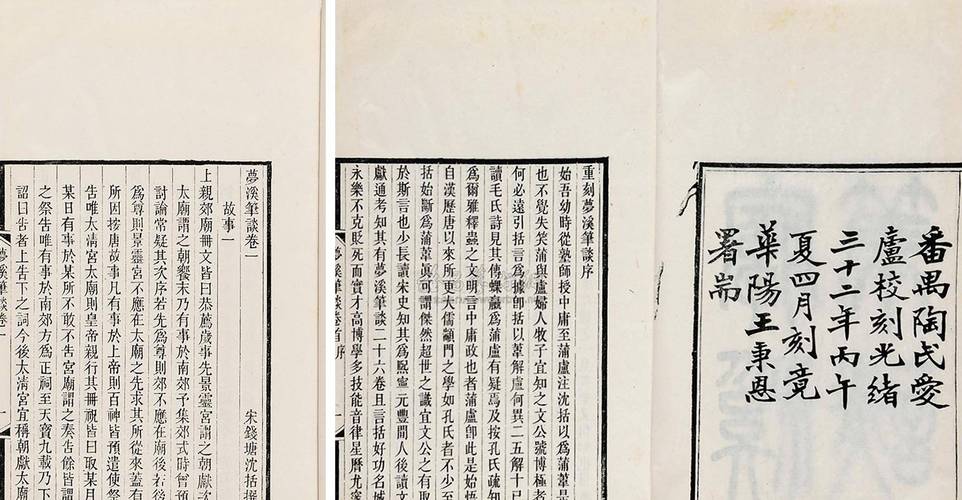 番禺陶氏愛
廬校刻光緒
三十二年丙午
夏四月刻竟
華陽王秉恩
署耑
重刻夢溪筆談序
始吾幼時從塾師授中庸至蒲盧注沈括以爲蒲葦是
也不覺失笑蒲與盧婦人牧子宜知之文公號博極者
何必遠引括言爲據卽括以葦解盧何異二五解十已
讀毛氏詩見其傳螺蠃爲蒲盧有疑焉及按孔氏疏知
爲爾雅釋蟲之文明言中庸政也者蒲盧卽此是始悟
自漢歷唐以來所更大儒顓門之學如孔氏者不少至
括始斷爲蒲葦眞可謂傑然超世之識宜文公之有取
於斯言也少長讀宋史知其爲熙寧元豐間人後讀文
獻通考知其有夢溪筆談二十六卷且言括好功名城
永樂不克貶死而實才高博學多技能音律星曆尤
夢溪筆談卷首 序
夢溪筆談卷一
宋錢塘沈括撰
故事一
上親郊廟冊文皆曰恭薦歲事先景靈宮謂之朝獻次
太廟謂之朝饗末乃有事於南郊予集郊式時曾預
討論常疑其次序若先爲尊則郊不應在廟後若後
爲尊則景靈宮不應在太廟之先求其所從來蓋有
所因按唐故事凡有事於上帝則百神皆預遣使祭
告唯太清宮太廟則皇帝親行其冊祝皆曰取某月
某日有事於某所不敢不告宮廟謂之奏告餘皆謂
之祭告唯有事於南郊方爲正祠至天寶九載乃下
詔曰告者上告下之詞今後太清宮宜稱朝獻太廟
夢溪筆談卷一 一